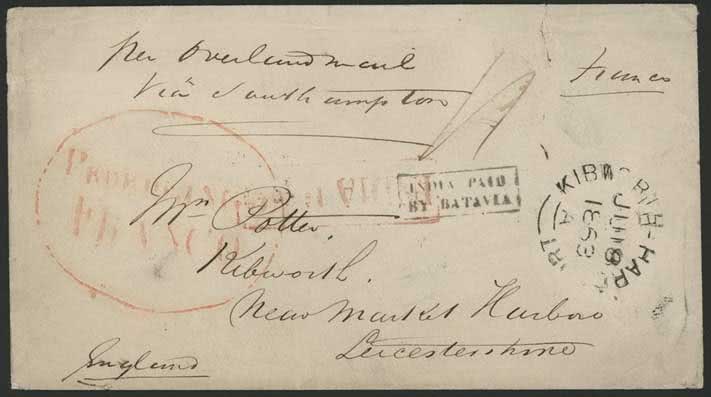 per Overland mail
Via Southampton
Franco
INDIA PAID
BY BATAVIA
KIBWORTH-HAR
JU 18
1853
A
FRANCO
Potter,
Kibworth.
New Market Harboro
Leicestershire
England